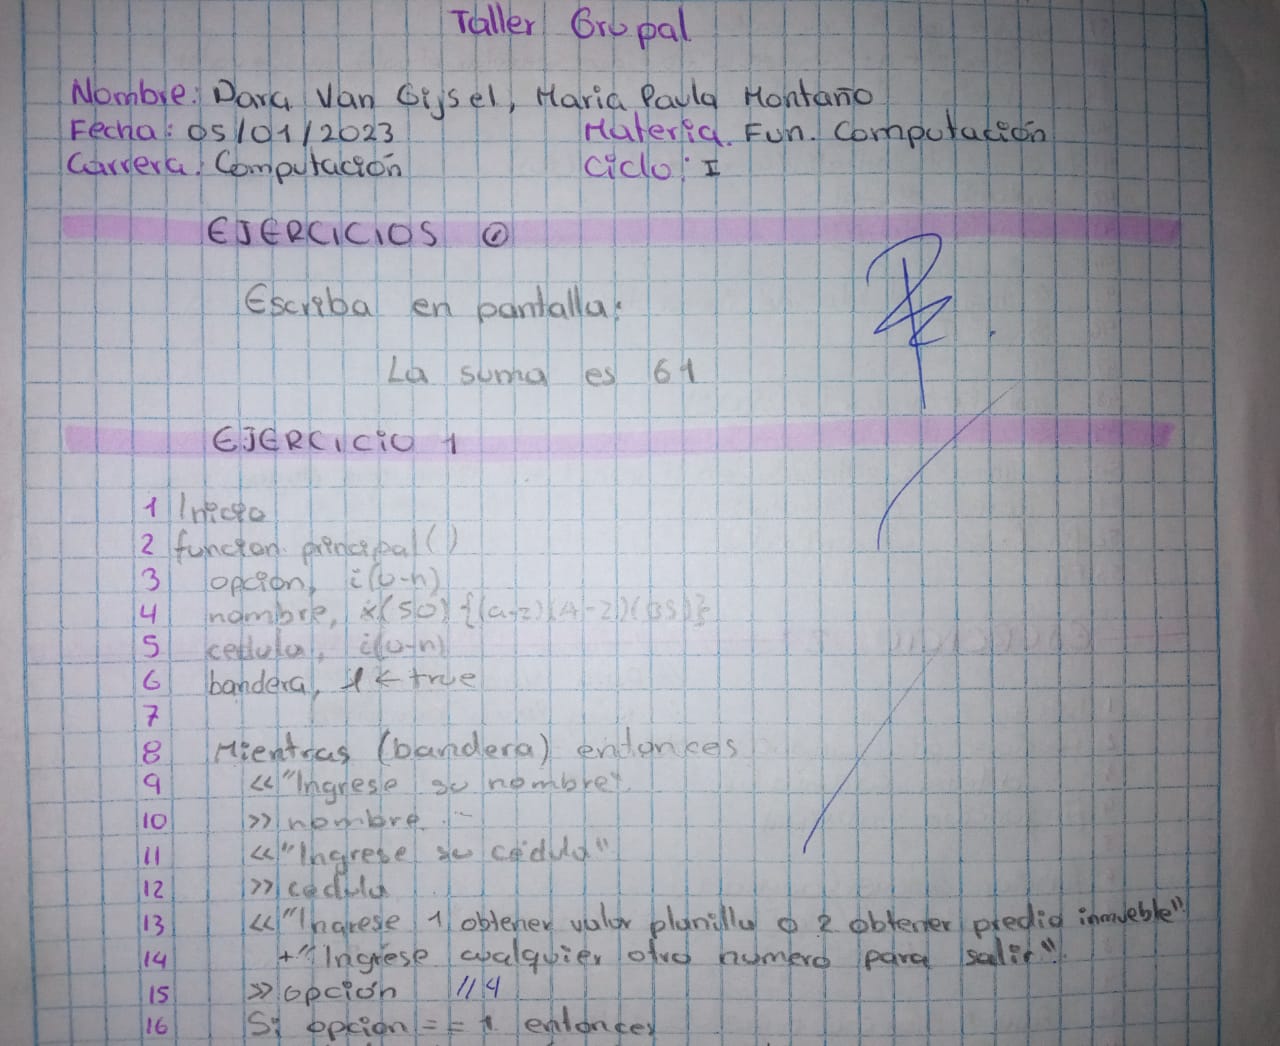 Taller Grupal
Nombre: Dara Van Gijsel, Maria Paula Montaño
Fecha: 05/01/2023 Materia. Fun. Computación
Carrera: Computación Ciclo: I
EJERCICIOS 0
Escriba en pantalla:
La suma es 61
EJERCICIO 1
1 Inicio
2 funcion principal()
3 opcion, i(0-n)
4 nombre, x(50){(a-z)(A-Z)(BS)}
5 cedula, i(0-n)
6 bandera, 1 ← true
7
8 Mientras (bandera) entonces
9 << "Ingrese su nombre"
10 >> nombre
11 << "Ingrese su cédula"
12 >> cedula
13 << "Ingrese 1 obtener valor planilla o 2 obtener predio inmueble"
14 + "Ingrese cualquier otro numero para salir"
15 >> opción //4
16 Si opcion == 1 entonces